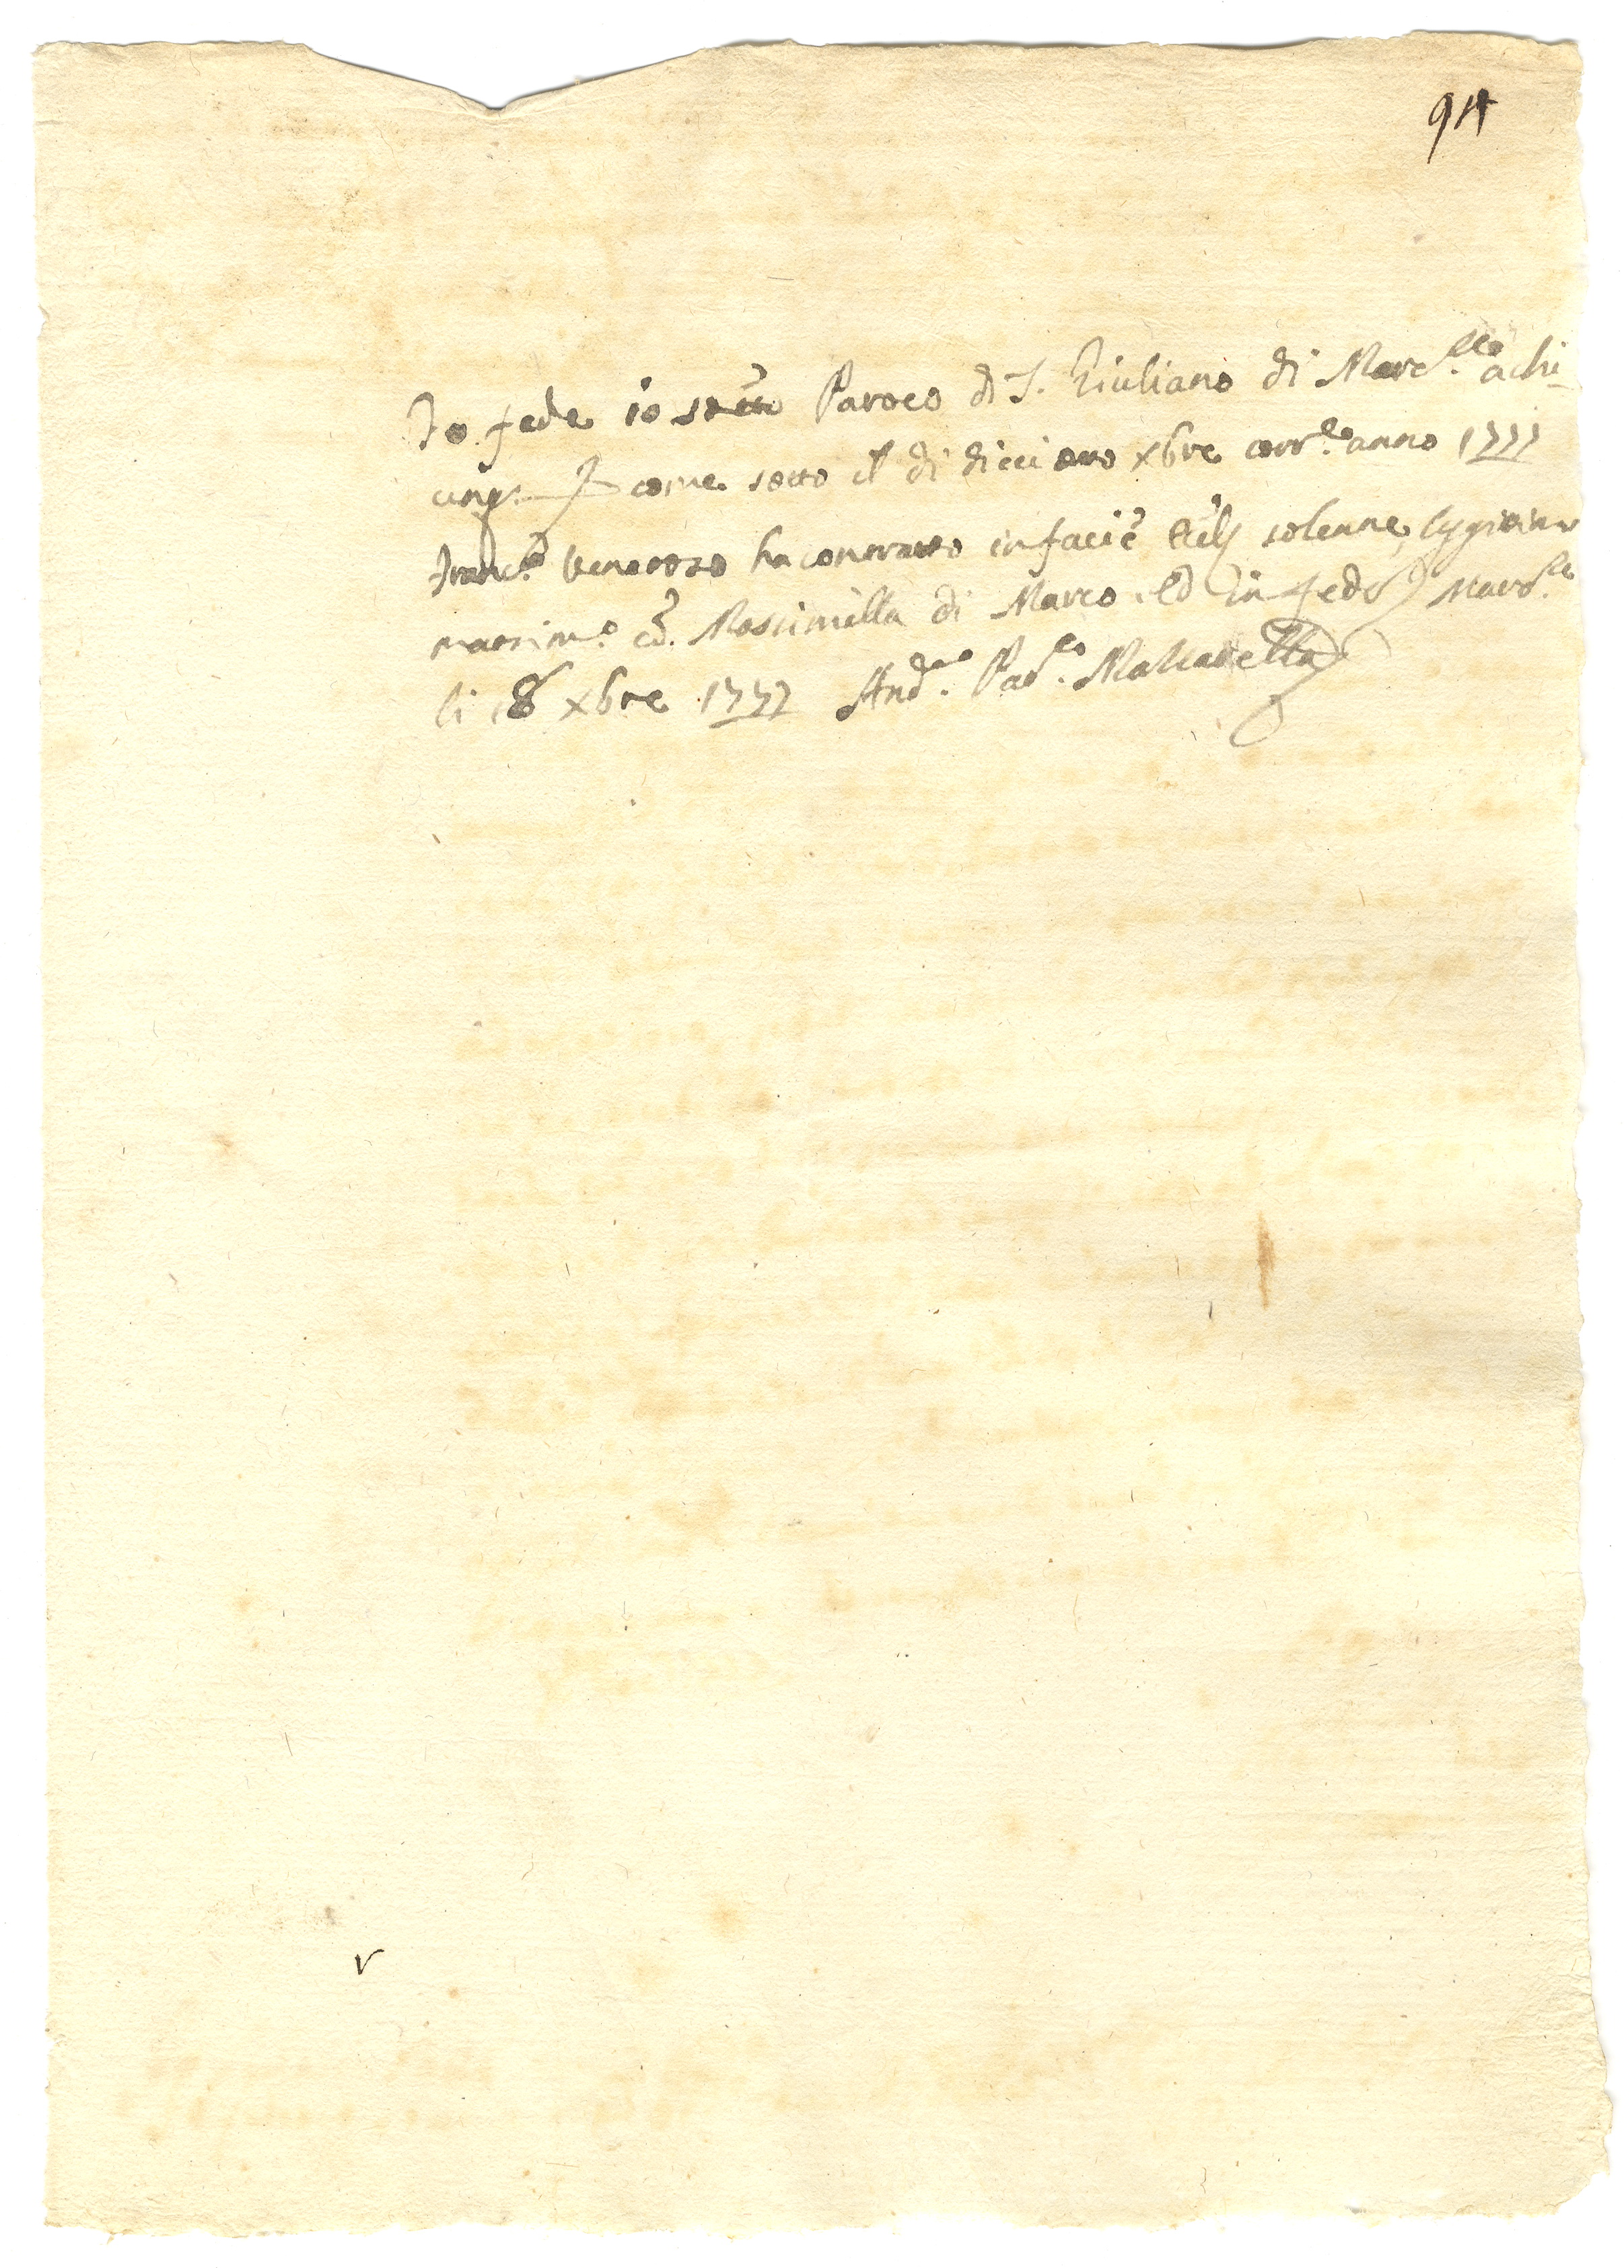 94
Fo fede io sotto Paroco di S. Giuliano di Marc.llo a chi
unq. come sotto il di dicciotto xbre corr.te anno 1777
Franc.o Veneroso ha contratto in facie Eccl. solenne, legitimo
matrim.o co. Massimilla di Marco. ed in fede Marc.llo
li 18 xbre 1777 And.a Par.co Mattarella